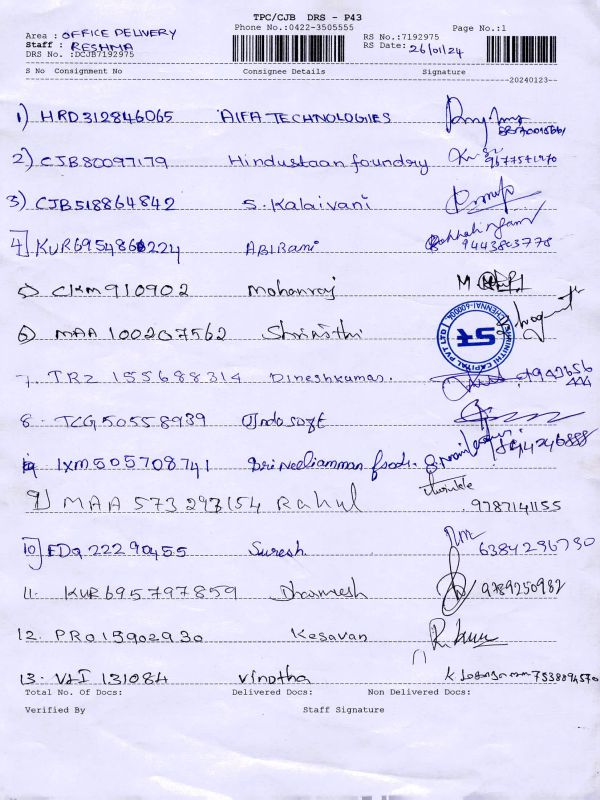 TPC/CJB DRS - P43
Phone No.:0422-3505555 Page No.:1
Area : OFFICE DELIVERY RS No.:7192975
Staff : RESHMA RS Date: 26/01/24
DRS No. :DCJB7192975
S No Consignment No Consignee Details Signature
20240123
1) HRD312846065 AIFA TECHNOLOGIES
2) CJB80097179 Hindustaan foundry
3) CJB518864842 S. Kalaivani
4) KUR6954860224 ABIRami 9443803778
5) CKM910902 Mohanraj
6) MAA 100207562 Shrinithi
7. TRZ 155688314 Dineshkumar.
8. TCG50558939 Indo soft
IXM505708741 Sri Neeliamman foods.
9) MAA 573293154 Rahul 9787141155
10) EDQ22290455 Suresh 6384296730
11. KUR695797859 Dharmesh 9789250982
12. PRO15902930 Kesavan
13. VAI 131084 Vinotha 7538894570
Total No. Of Docs: Delivered Docs: Non Delivered Docs:
Verified By Staff Signature